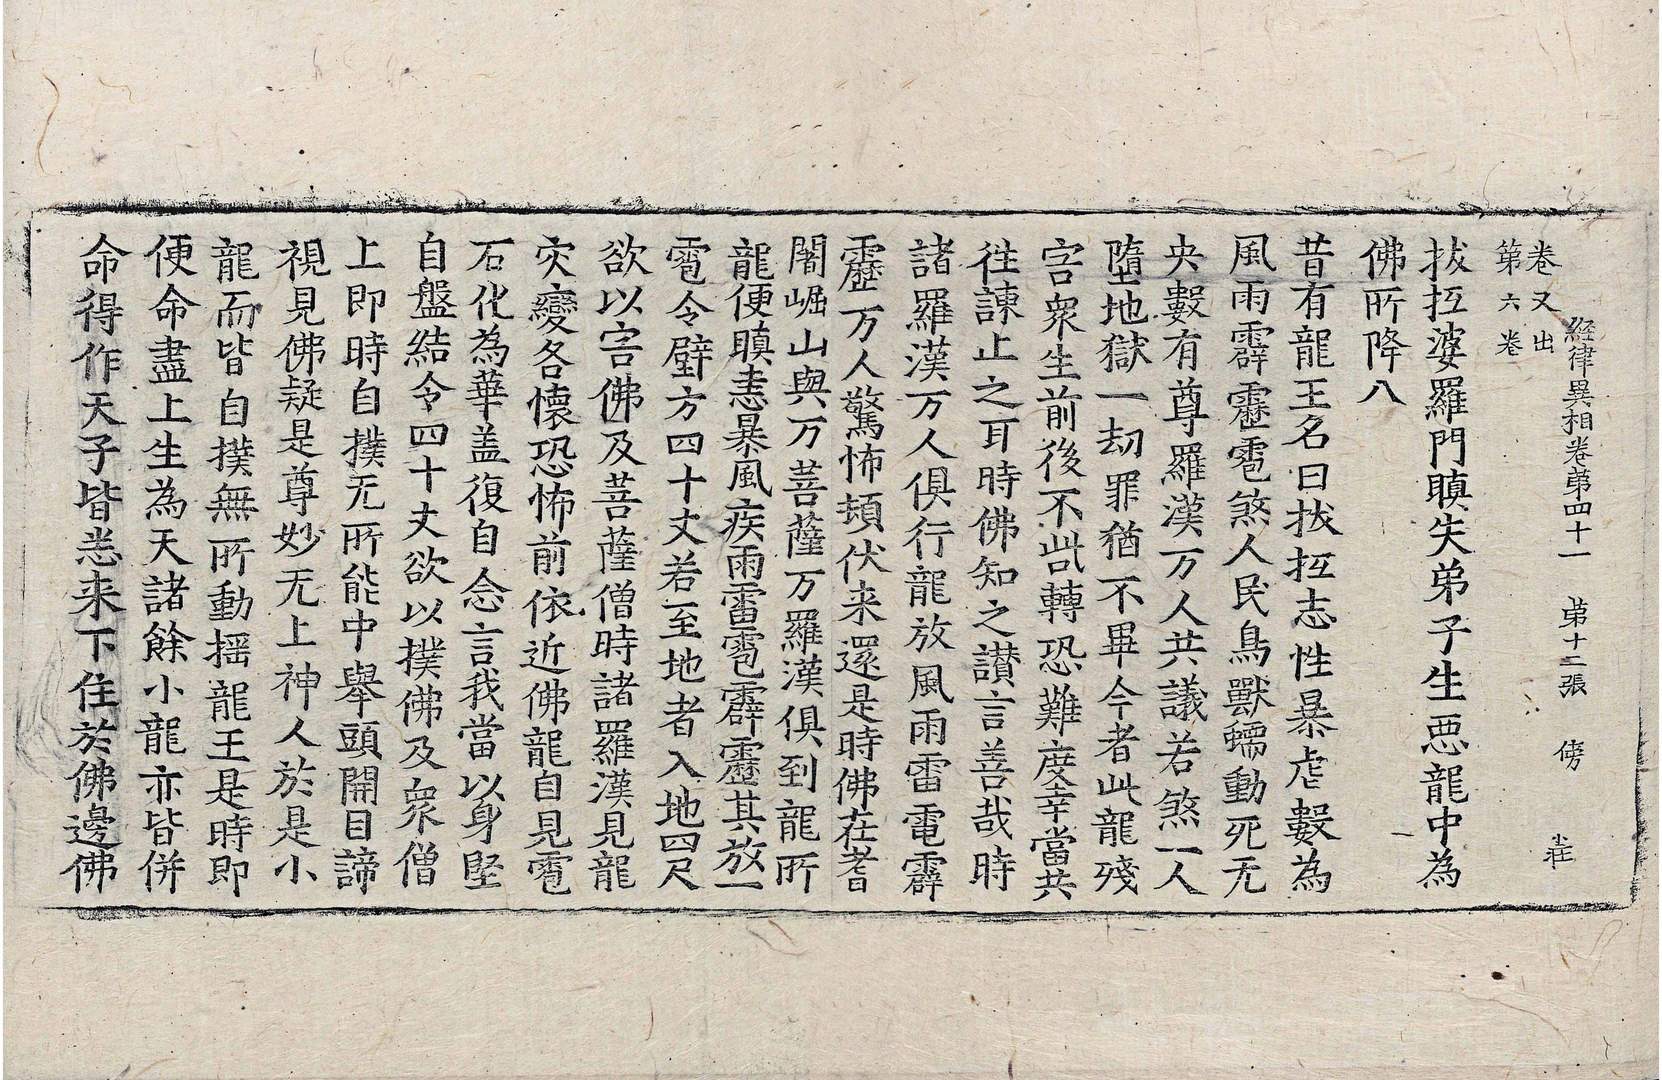 經律異相卷第四十一 第十二張 傍 㽵
卷又出
第六卷
拔抂婆羅門瞋失弟子生惡龍中為
佛所降八
昔有龍王名曰拔抂志性暴虐數為
風雨霹靂雹煞人民鳥獸蠕動死无
央數有尊羅漢万人共議若煞一人
墮地獄一劫罪猶不畢今者此龍殘
害衆生前後不訾轉恐難度幸當共
往諫止之耳時佛知之讃言善哉時
諸羅漢万人俱行龍放風雨雷電霹
靂万人驚怖頓伏来還是時佛在耆
闍崛山與万菩薩万羅漢俱到龍所
龍便瞋恚暴風疾雨雷雹霹靂其放一
雹令躃方四十丈若至地者入地四尺
欲以害佛及菩薩僧時諸羅漢見龍
灾變各懷恐怖前依近佛龍自見雹
石化為華盖復自念言我當以身堅
自盤結令四十丈欲以撲佛及衆僧
上即時自撲无所能中舉頭開目諦
視見佛疑是尊妙无上神人於是小
龍而皆自撲無所動揺龍王是時即
便命盡上生為天諸餘小龍亦皆併
命得作天子皆悉来下住於佛邊佛